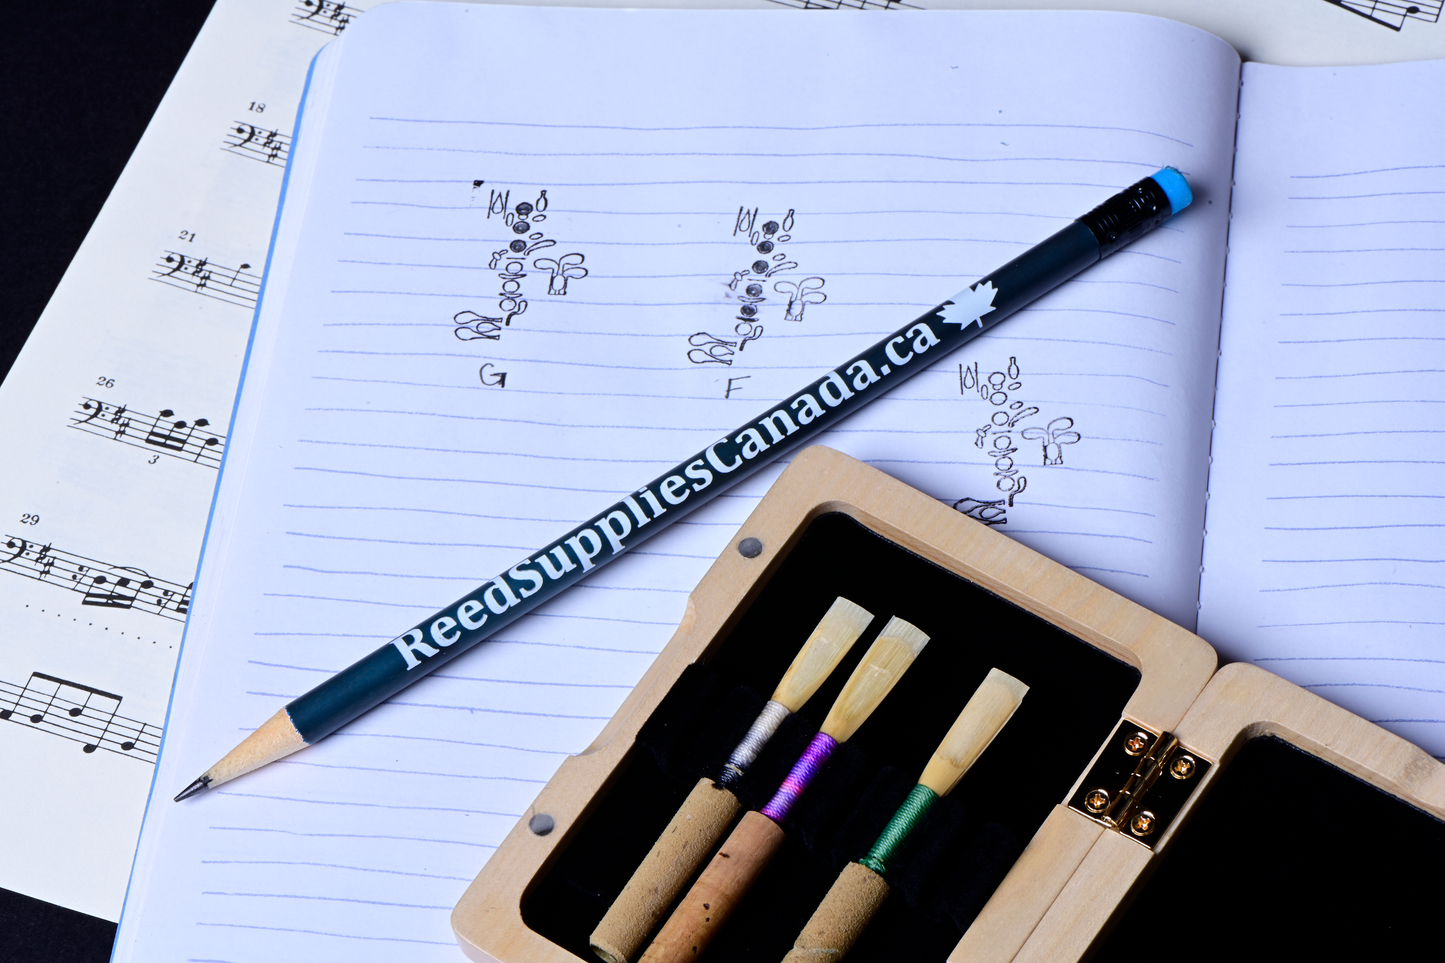 18
21
26
3
29
G
F
ReedSuppliesCanada.ca